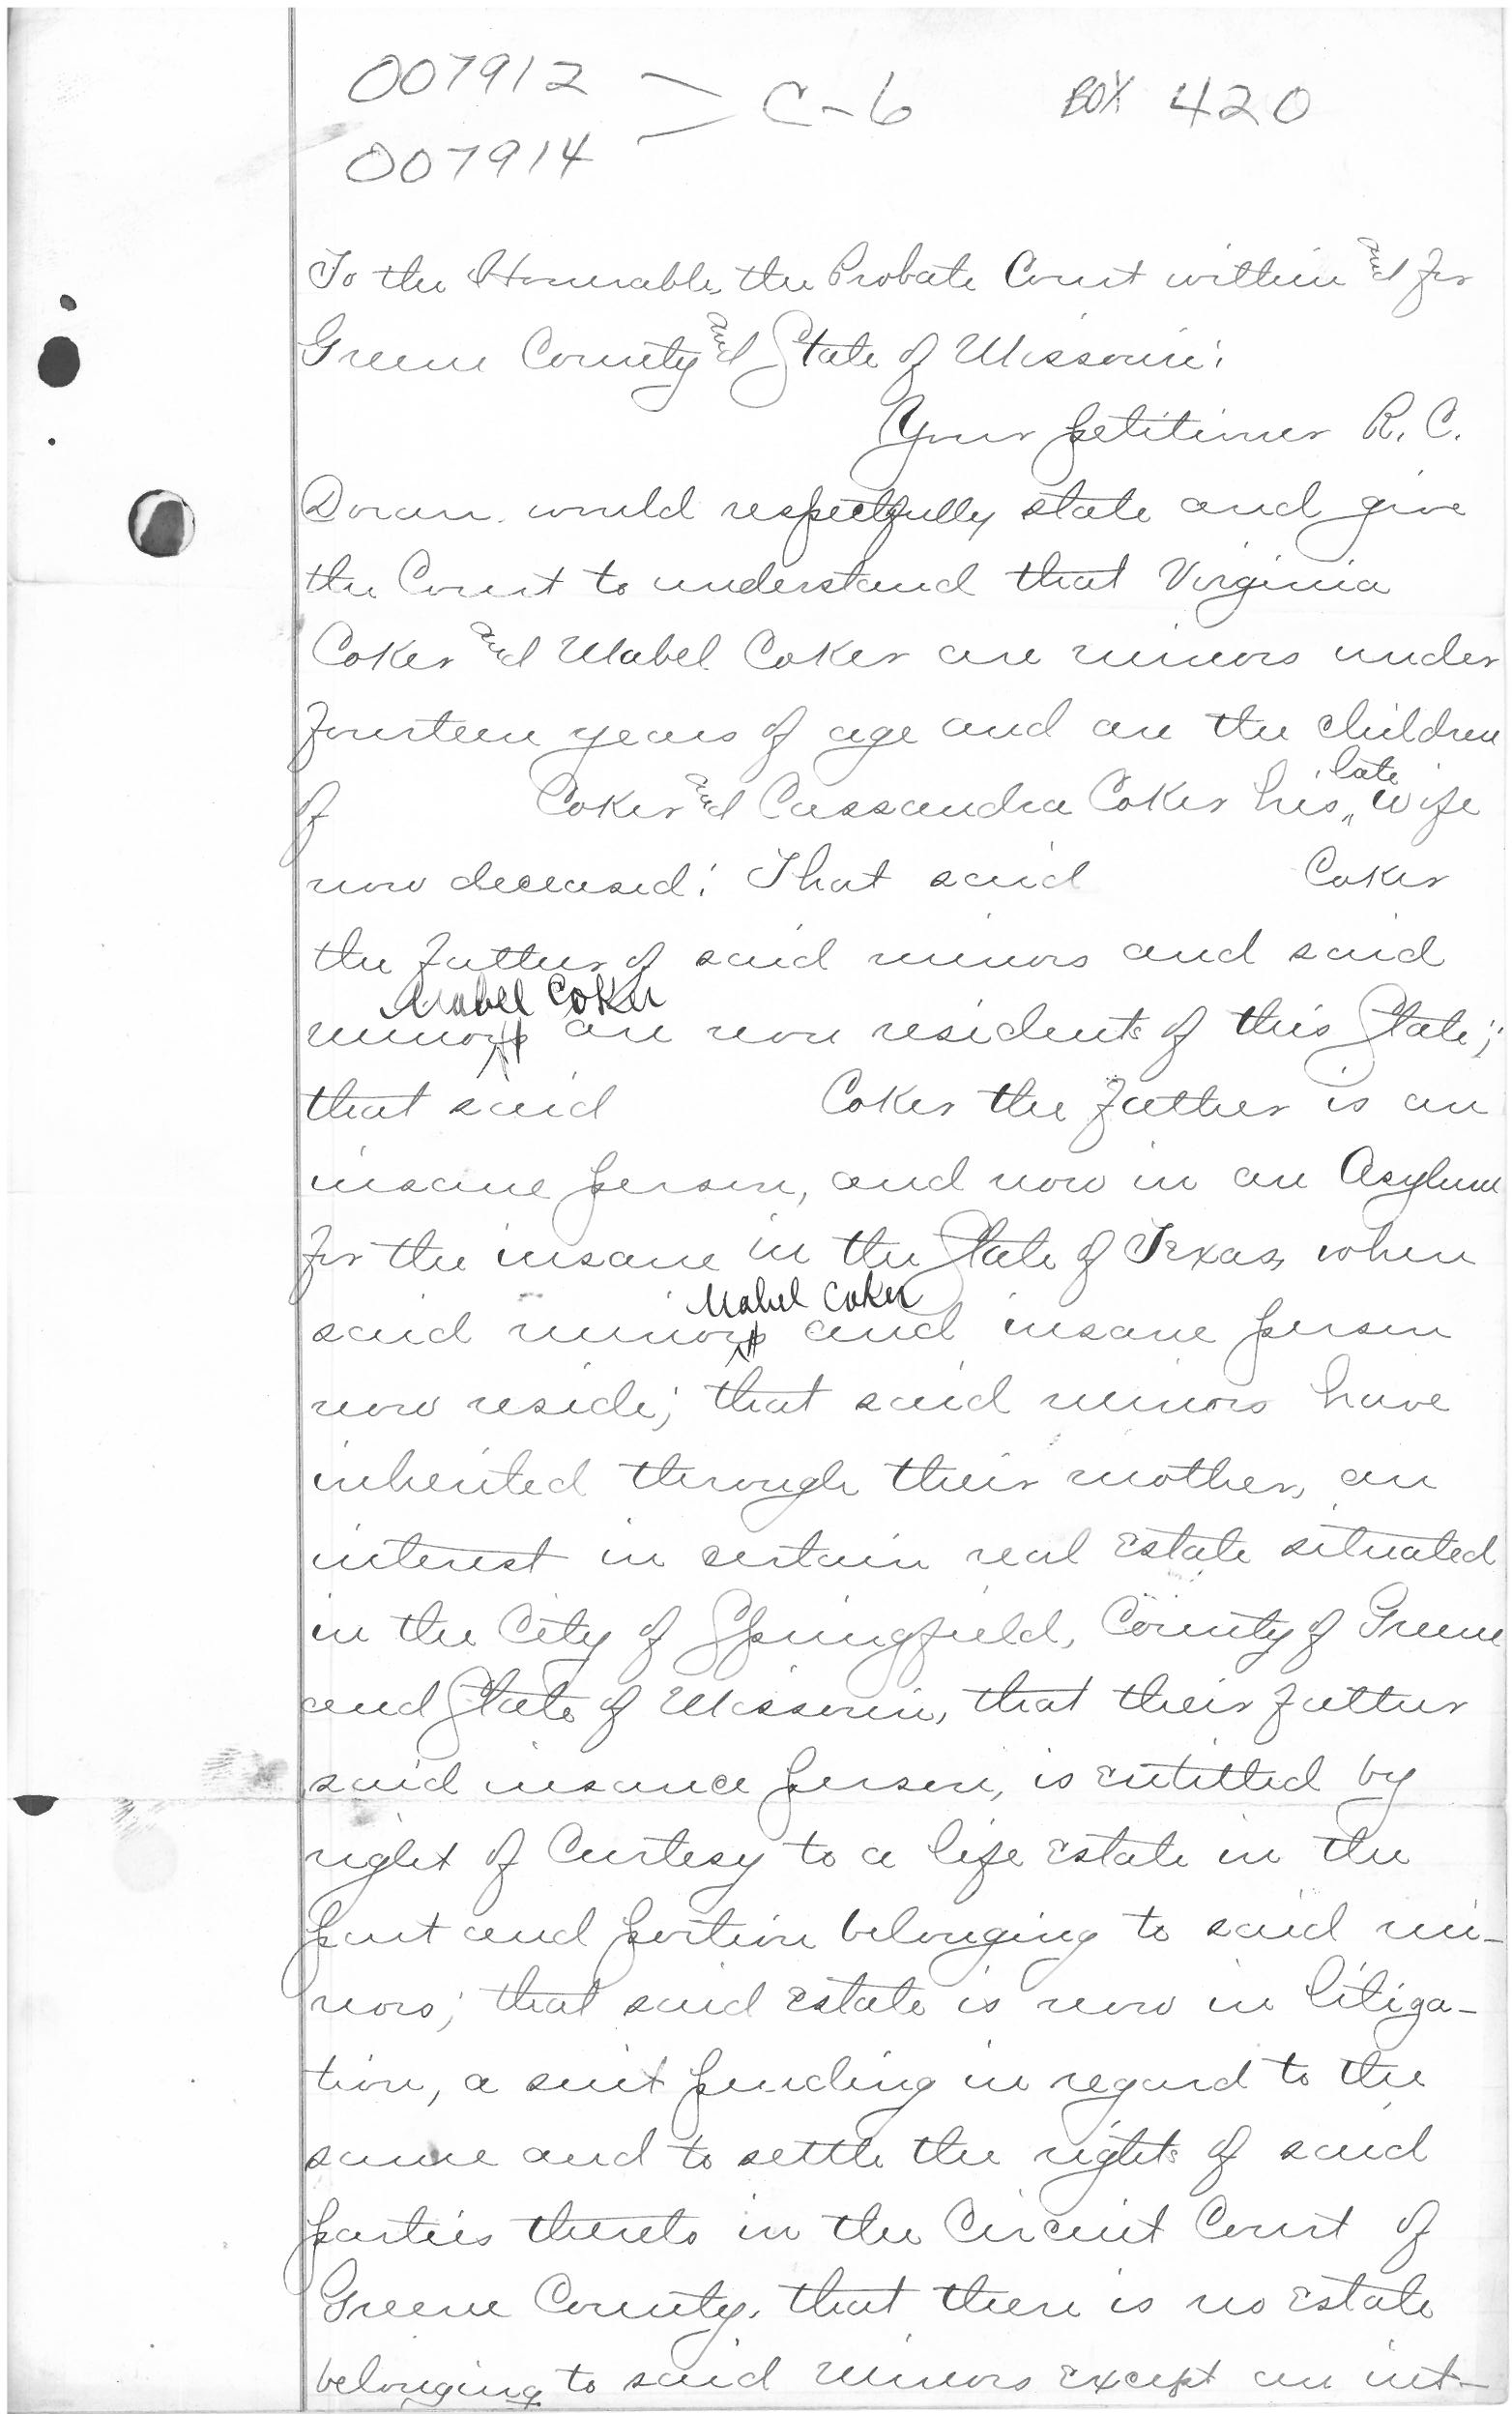 007912
C-6 BOX 420
007914
To the Honorable, the Probate Court within and for
Greene County and State of Missouri:
Your petitioner R. C.
Doran would respectfully state and give
the Court to understand that Virginia
Coker and Mabel Coker are minors under
fourteen years of age and are the children
late
of Coker and Cassandra Coker his wife
now deceased; That said Coker
the father of said minors and said
Mabel Coker
minor are non residents of this State;
that said Coker the father is an
insane person, and now in an Asylum
for the insane in the State of Texas, when
Mabel Coker
said minor and insane person
now reside; that said minors have
inherited through their mother, an
interest in certain real Estate situated
in the City of Springfield, County of Greene
and State of Missouri, that their father
said insance person, is entitled by
right of Curtesy to a life Estate in the
part and portion belonging to said mi-
nors; that said Estate is now in litiga-
tion, a suit pending in regard to the
same and to settle the rights of said
parties thereto in the Circuit Court of
Greene County, that there is no Estate
belonging to said minors except an int-